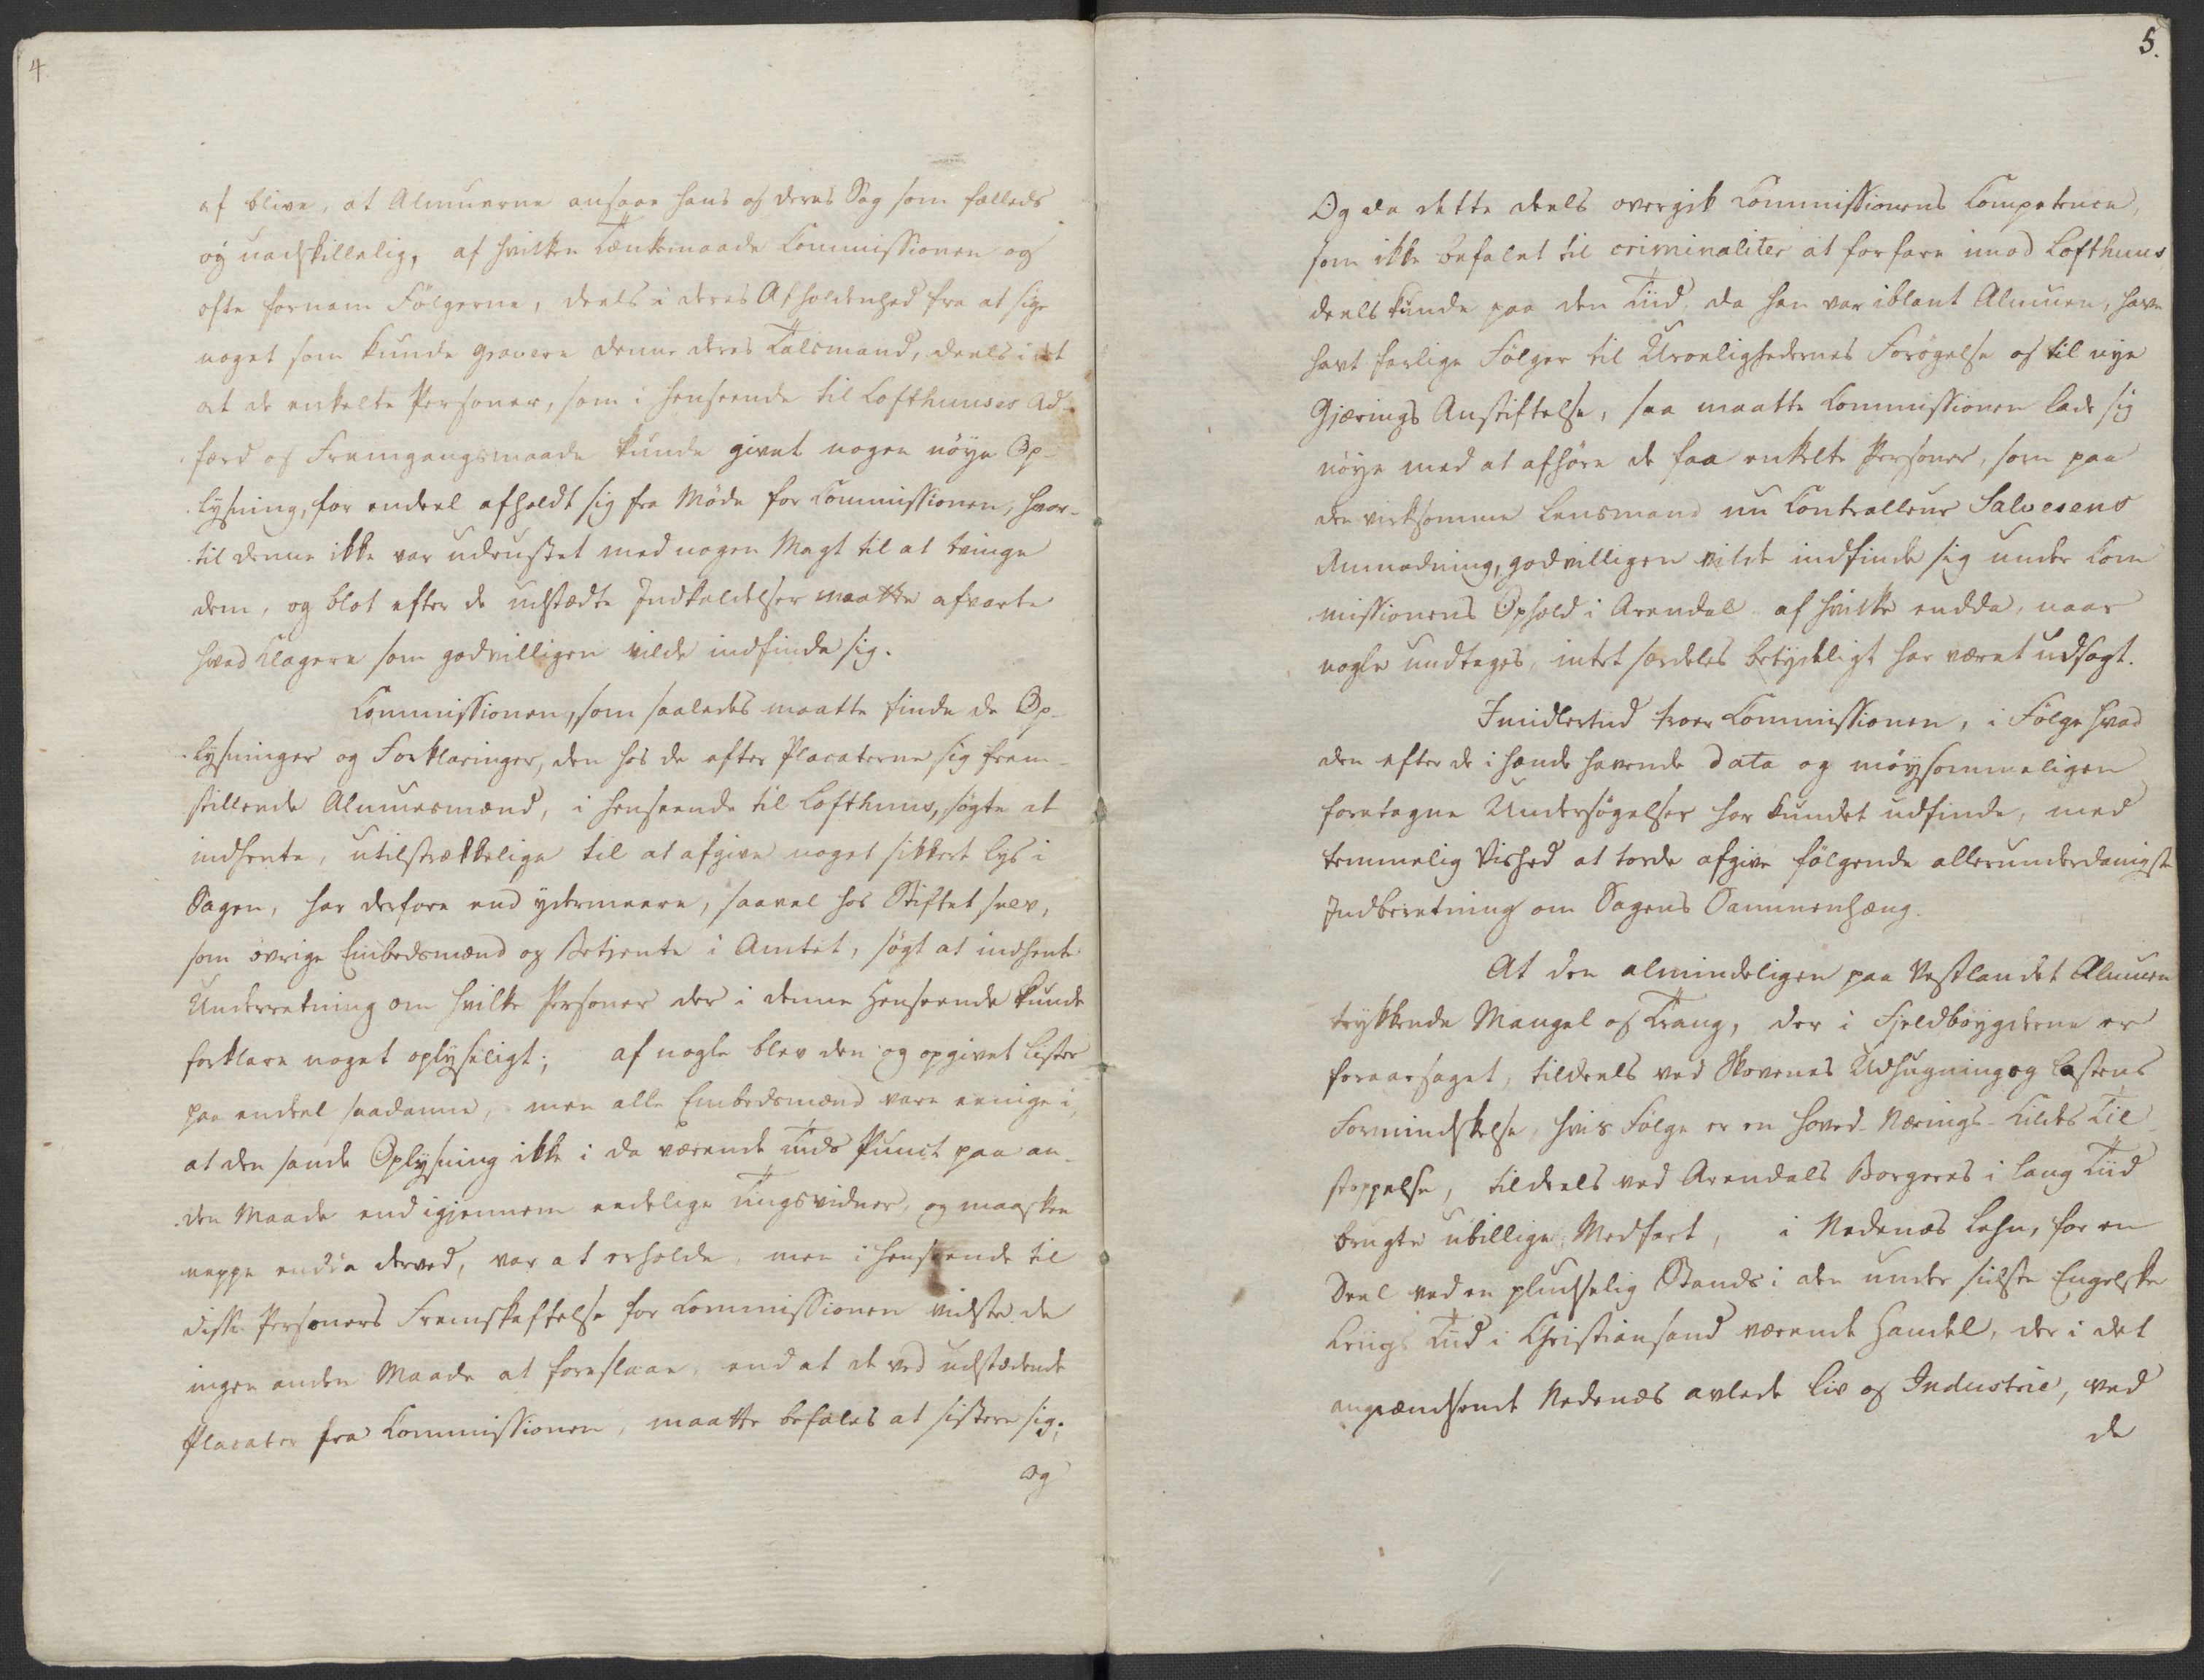 4
af blive, at Almuerne ansaae hans og deres Sag som fælleds
og uadskillelig, af hvilken Tænkemaade Commissionen og
ofte fornam Følgerne, deels i deres Afholdenhed fra at sige
noget som kunde gravere denne deres Talsmand, deels i det
at de enkelte Personer, som i henseende til Lofthuuses Ad-
færd og Fremgangsmaade kunde givet nogen nøye Op-
lysning, for endeel afholdt sig fra Møde for Commissionen, hvor-
til denne ikke var udrustet med nogen Magt til at tvinge
dem, og blot efter de udstædte Indkaldelser maatte afvarte
hvad Klagere som godvilligen vilde indfinde sig.
Commissionen, som saaledes maatte finde de Op-
lysninger og Forklaringer, den hos de efter Placaterne sig frem-
stillende Almuesmænd, i henseende til Lofthuus, søgte at
indhente, utilstrækkelige til at afgive noget sikkert Lys i
Sagen, har derfore end ydermeere, saavel hos Stiftet selv,
som øvrige Embedsmænd og Betjente i Amtet, søgt at indhente
Underretning om hvilke Personer der i denne Henseende kunde
forklare noget oplyseligt; af nogle blev den og opgivet Lister
paa endeel saadanne, men alle Embedsmænd vare eenige i,
at den sande Oplysning ikke i da værende Tids Punct paa an-
den Maade end igjennem eedelige Tingsvidner, og maaskee
neppe endda derved, var at erholde, men i henseende til
disse Personers Fremskaffelse for Commissionen vidste de
ingen anden Maade at foreslaae, end at de ved udstædende
Placater fra Commissionen, maatte befales at sistere sig;
Og
5.
Og da dette deels overgik Commissionens Competence,
som ikke befalet til criminaliter at forfare imod Lofthuus
deels kunde paa den Tiid da han var iblant Almuen, have
havt farlige Følger til Uroelighedernes Forøgelse og til nye
Gjærings Anstiftelse, saa maatte Commissionen lade sig
nøye med at afhøre de faa enkelte Personer, som paa
den virksomme Lensmand nu Contralleur Salvesens
Anmodning, godvilligen vilde indfinde sig under Com
missionens Ophold i Arendal af hvilke endda, naar
nogle undtages, intet særdeles betydeligt har været udsagt.
Imidlertid troer Commissionen, i Følge hvad
den efter de i hænde havende data og møysommeligen
foretagne Undersøgelser har kundet udfinde, med
temmelig Vished at torde afgive følgende allerunderdanigste
Indberetning om Sagens Sammenhæng.
At den almindeligen paa Vestlandet Almuen
trykkende Mangel og Trang, der i Fjeldbøygderne er
foraarsaget, tildeels ved Skovenes Udhugning og Lastens
Formindskelse, hvis Følge er en Hoved-Nærings-Kildes Til
stoppelse, tildeels ved Arendals Borgeres i lang Tiid
brugte ubillige Medfart, i Nedenæs Lehn, for en
Deel ved en pludselig Stands i den under sidste Engelske
Kriigs Tiid i Christiansand værende Handel, der i det
angrændsende Nedenæs avlede Liv og Industrie, ved
de